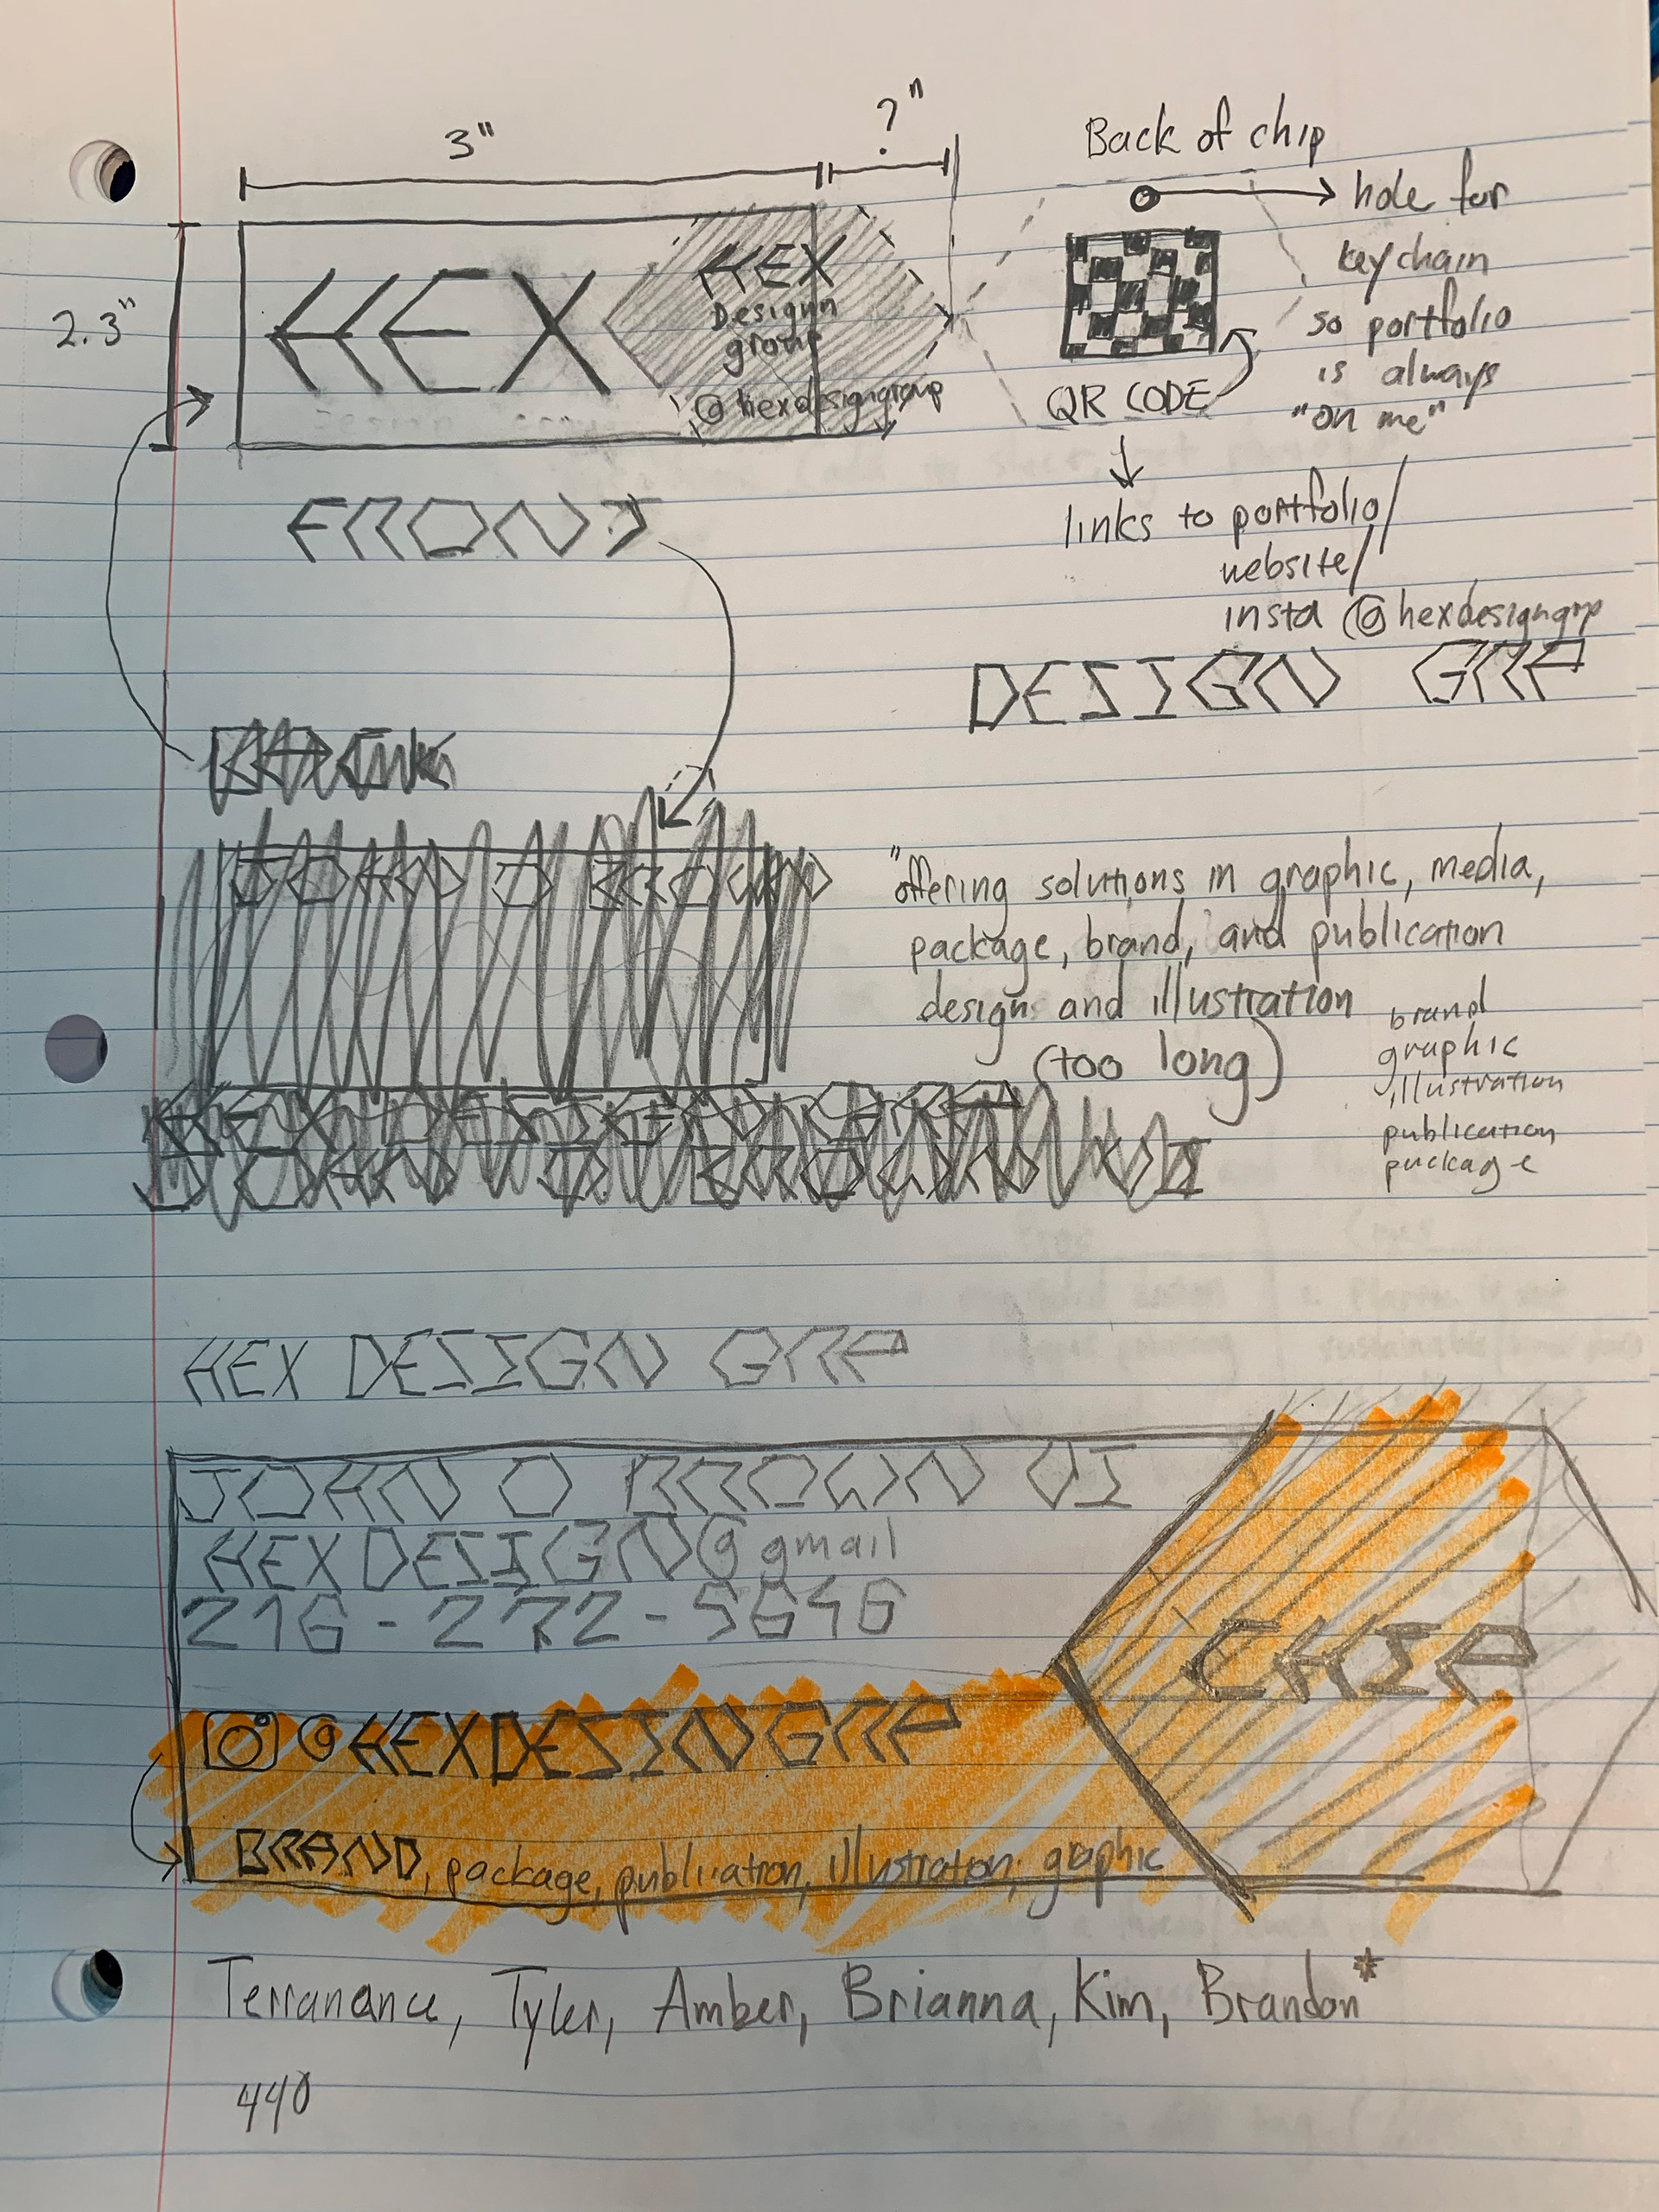 3"
?"
2.3"
HEX
HEX
Designn
group
@hexdesigngroup
Back of chip
hole for
keychain
so portfolio
is always
"on me"
QR CODE
links to portfolio/
website/
insta @hexdesigngrp
FRONT
DESIGN GRP
JOHN O BROWN
"offering solutions in graphic, media,
package, brand, and publication
design and illustration
(too long)
brand
graphic
illustration
publication
package
HEX DESIGN GRP
JOHN O BROWN VI
HEX DESIGN GRP
JOHN O BROWN VI
HEXDESIGN@gmail
216-272-5646
@HEXDESINGRP
BRAND, package, publication, illustration, graphic
CHIP
Terranance, Tyler, Amber, Brianna, Kim, Brandon*
440